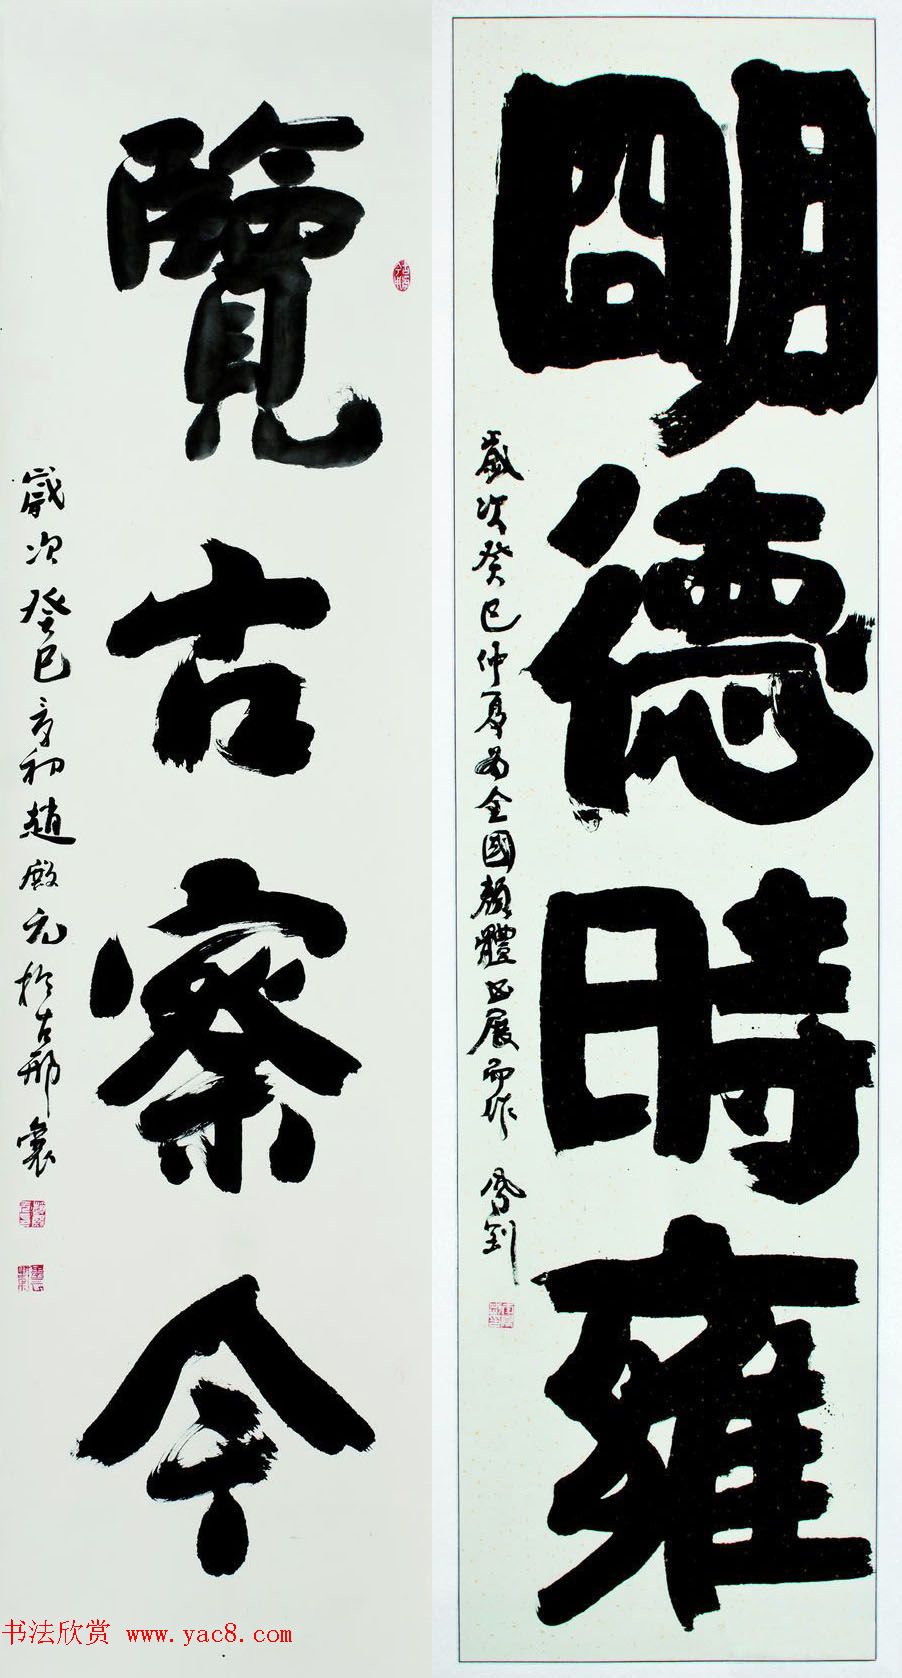 明德時雍
歲次癸巳仲夏為全國顏體書展而作
覽古察今
歲次癸巳夏初趙殿元於古邢襄
书法欣赏 www.yac8.com